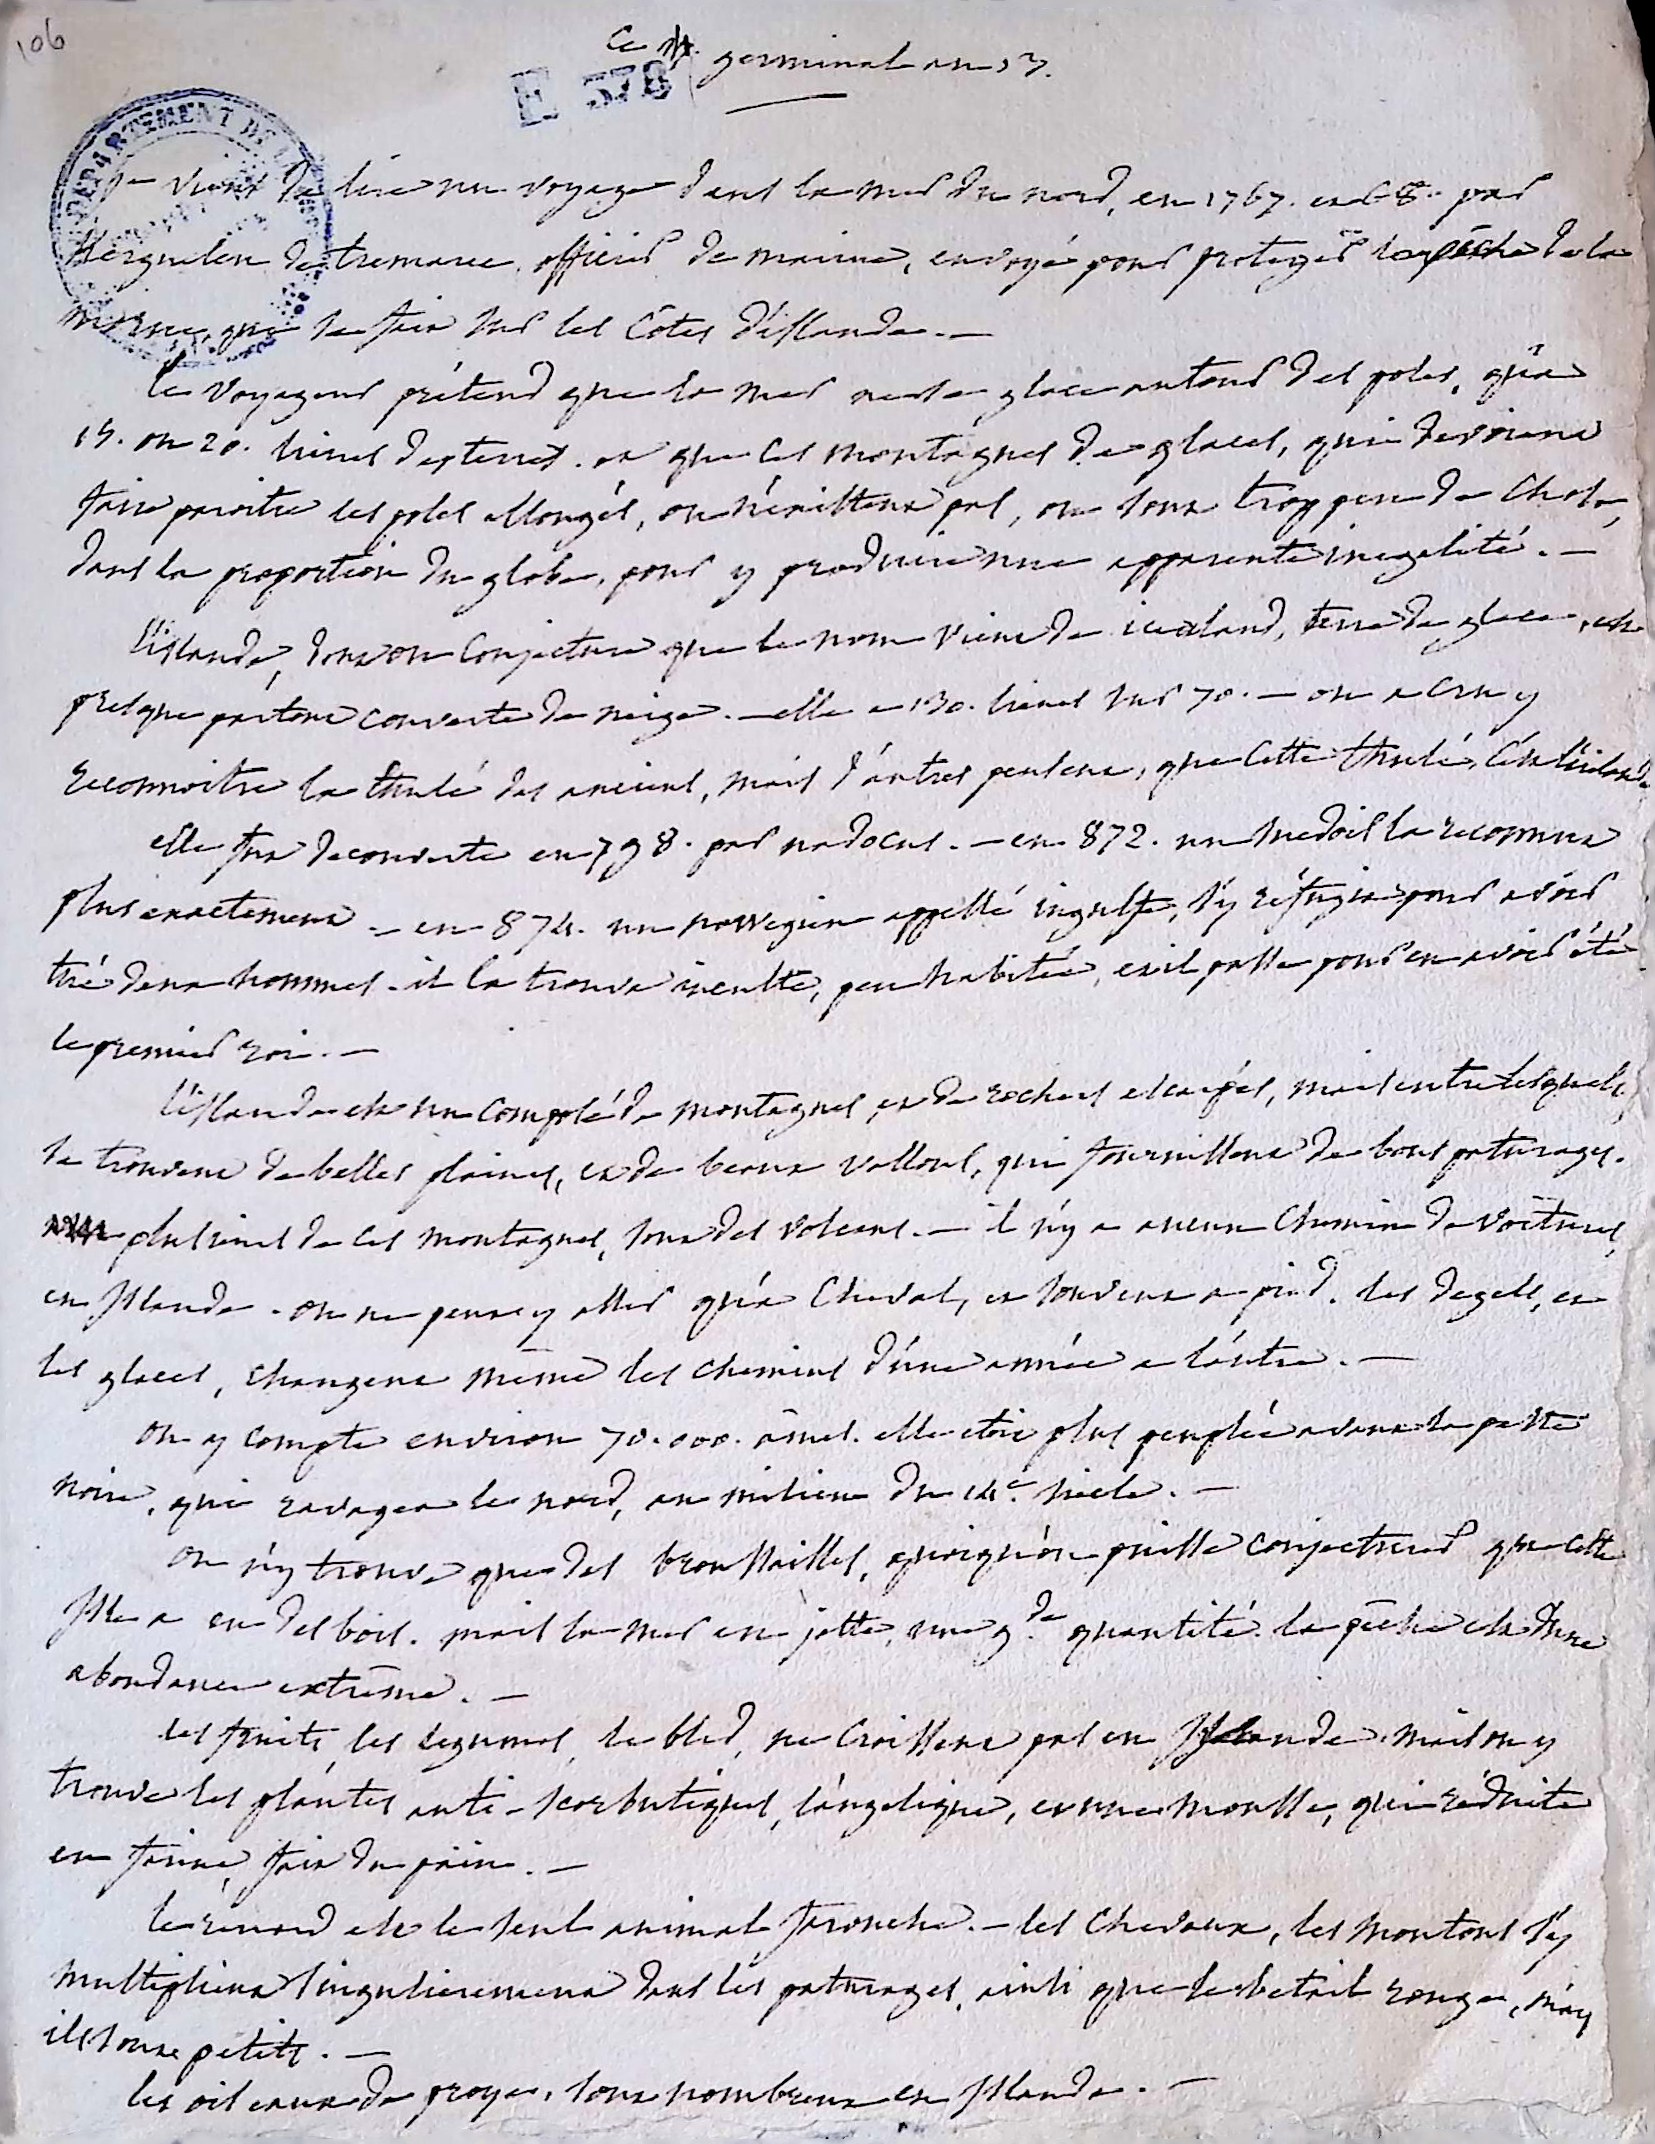 106
Ce germinal an 13.
E 378
DEPARTEMENT DE
Je viens de lire un voyage dans la mer du nord, en 1767. et 68. par
Kerguelen de tremarec, officier de marine, envoyé pour proteger la pêche de la
morue, qui se fait sur les Côtes d'islande. —
le voyageur prétend que la mer ne se glace autour des poles, qu'a
15. ou 20. lieues des terres. et que ces montagnes de glaces, qui devoient
faire paroitre les poles allongés, ou n'existent pas, ou sont trop peu de chose,
dans la proportion du globe, pour y produire une apparente inegalité. —
l'islande, dont on conjecture que le nom vient de iceland, terre de glace, est
presque partout couverte de neige. — elle a 130. lieues sur 70. — on a cru y
reconnoitre la thulé des anciens, mais d'autres pensent, que cette thulé, c'est
elle fut decouverte en 798. par nadocus. — en 872. un suedois la reconnut
plus exactement — en 874. un norvegien appellé ingulfe, s'y refugia pour avoir
tué deux hommes. il la trouva inculte, peu habitée, et il passe pour en avoir été
le premier roi. —
l'islande est un composé de montagnes, et de rochers escarpés, mais entre lesquels,
se trouvent de belles plaines, et de beaux vallons, qui fournissent de bons paturages.
plusieurs de ces montagnes, sont des volcans. — il n'y a aucun chemin de voitures,
en Islande. on ne peut y aller qu'a cheval, et souvent a pied. les degels, et
les glaces, changent même les chemins d'une année a l'autre. —
on y compte environ 70.000. âmes. elle etoit plus peuplée avant la peste
noire, qui ravagea le nord, au milieu du 14e. siècle. —
on n'y trouve que des broussailles, quoiqu'on puisse conjecturer que cette
Isle a eu des bois. mais la mer en jette, une gde quantité. la pêche est d'une
abondance extrême. —
les fruits, les legumes, le bled, ne croissent pas en Islande. mais on y
trouve les plantes anti-scorbutiques, l'angelique, et une mousse, qui réduite
en farine, fait du pain. —
le renard est le seul animal farouche. — les chevaux, les moutons s'y
multiplient singulierement dans les paturages, ainsi que le betail rouge, mais
ils sont petits. —
les oiseaux de proye, sont nombreux en Islande. —